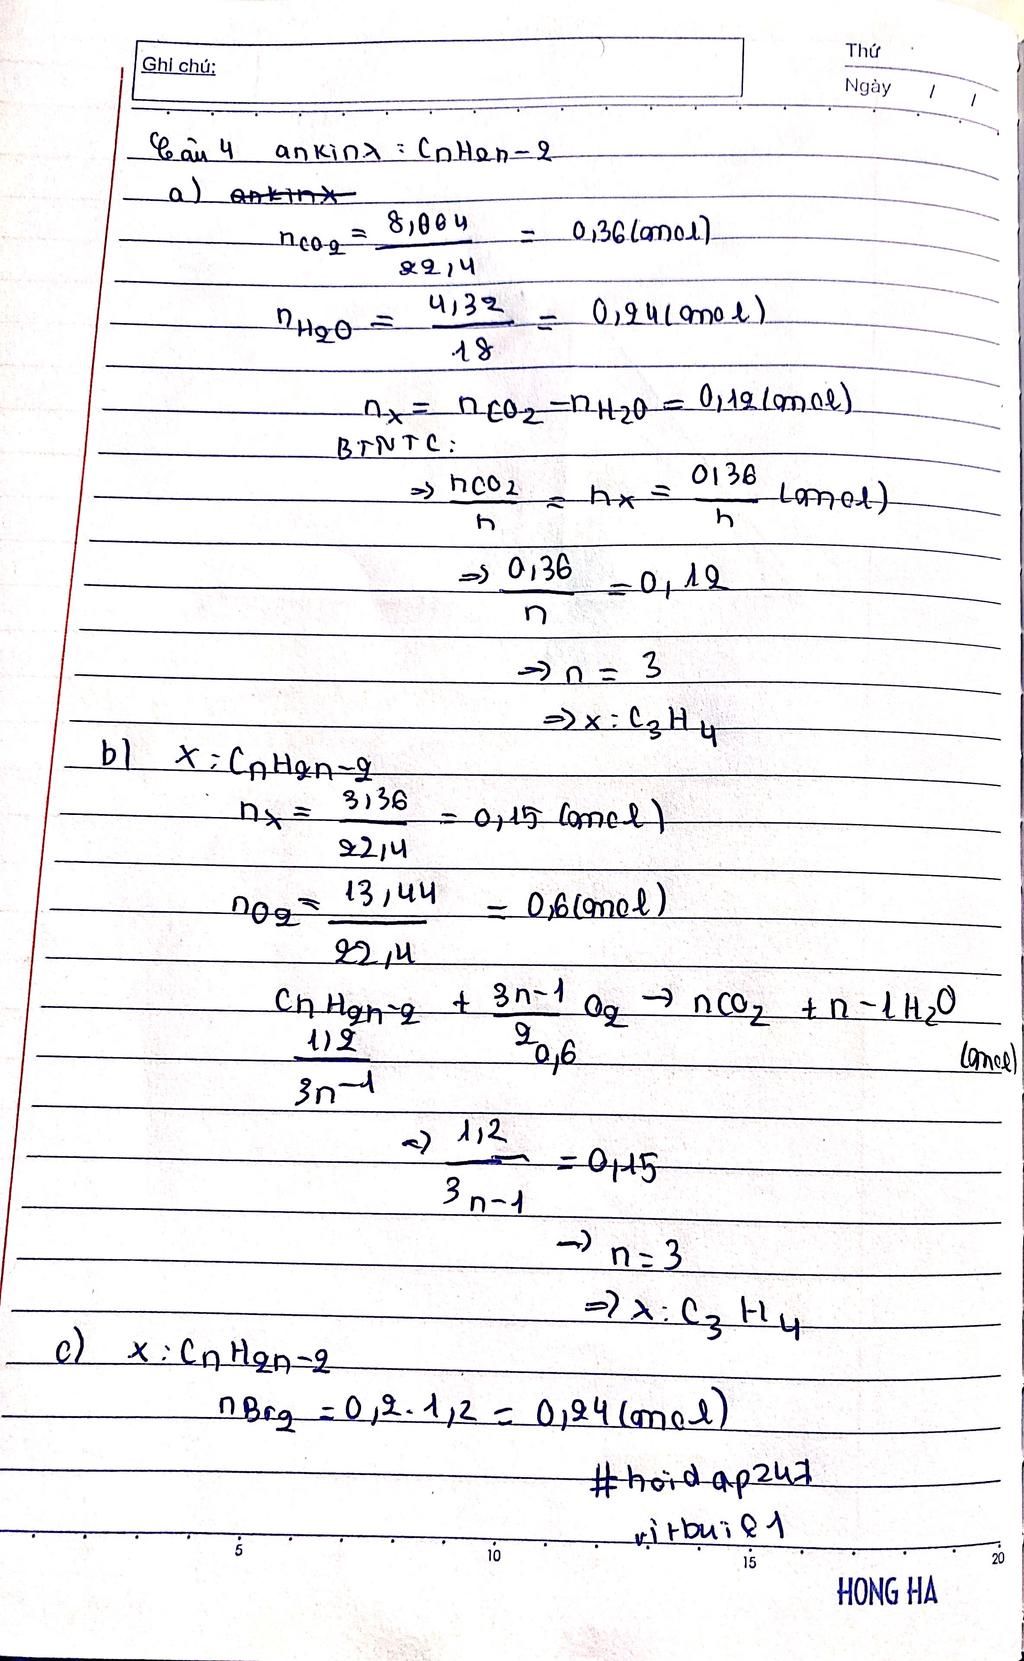 Ghi chú:
Thứ
Ngày / /
Câu 4 ankin X : CnH2n-2
a) ankin X
nCO2 = 8,064 / 22,4 = 0,36 (mol)
nH2O = 4,32 / 18 = 0,24 (mol)
nX = nCO2 - nH2O = 0,12 (mol)
BTNTC:
=> nCO2 / n = nX = 0,36 / n (mol)
=> 0,36 / n = 0,12
=> n = 3
=> X : C3H4
b) X : CnH2n-2
nX = 3,36 / 22,4 = 0,15 (mol)
nO2 = 13,44 / 22,4 = 0,6 (mol)
CnH2n-2 + 3n-1 / 2 O2 → nCO2 + n-1H2O
1,2 / 3n-1 0,6 (mol)
=> 1,2 / 3n-1 = 0,15
→ n = 3
=> X : C3H4
c) X : CnH2n-2
nBr2 = 0,2 . 1,2 = 0,24 (mol)
#hoidap247
5 10 15 20
HONG HA